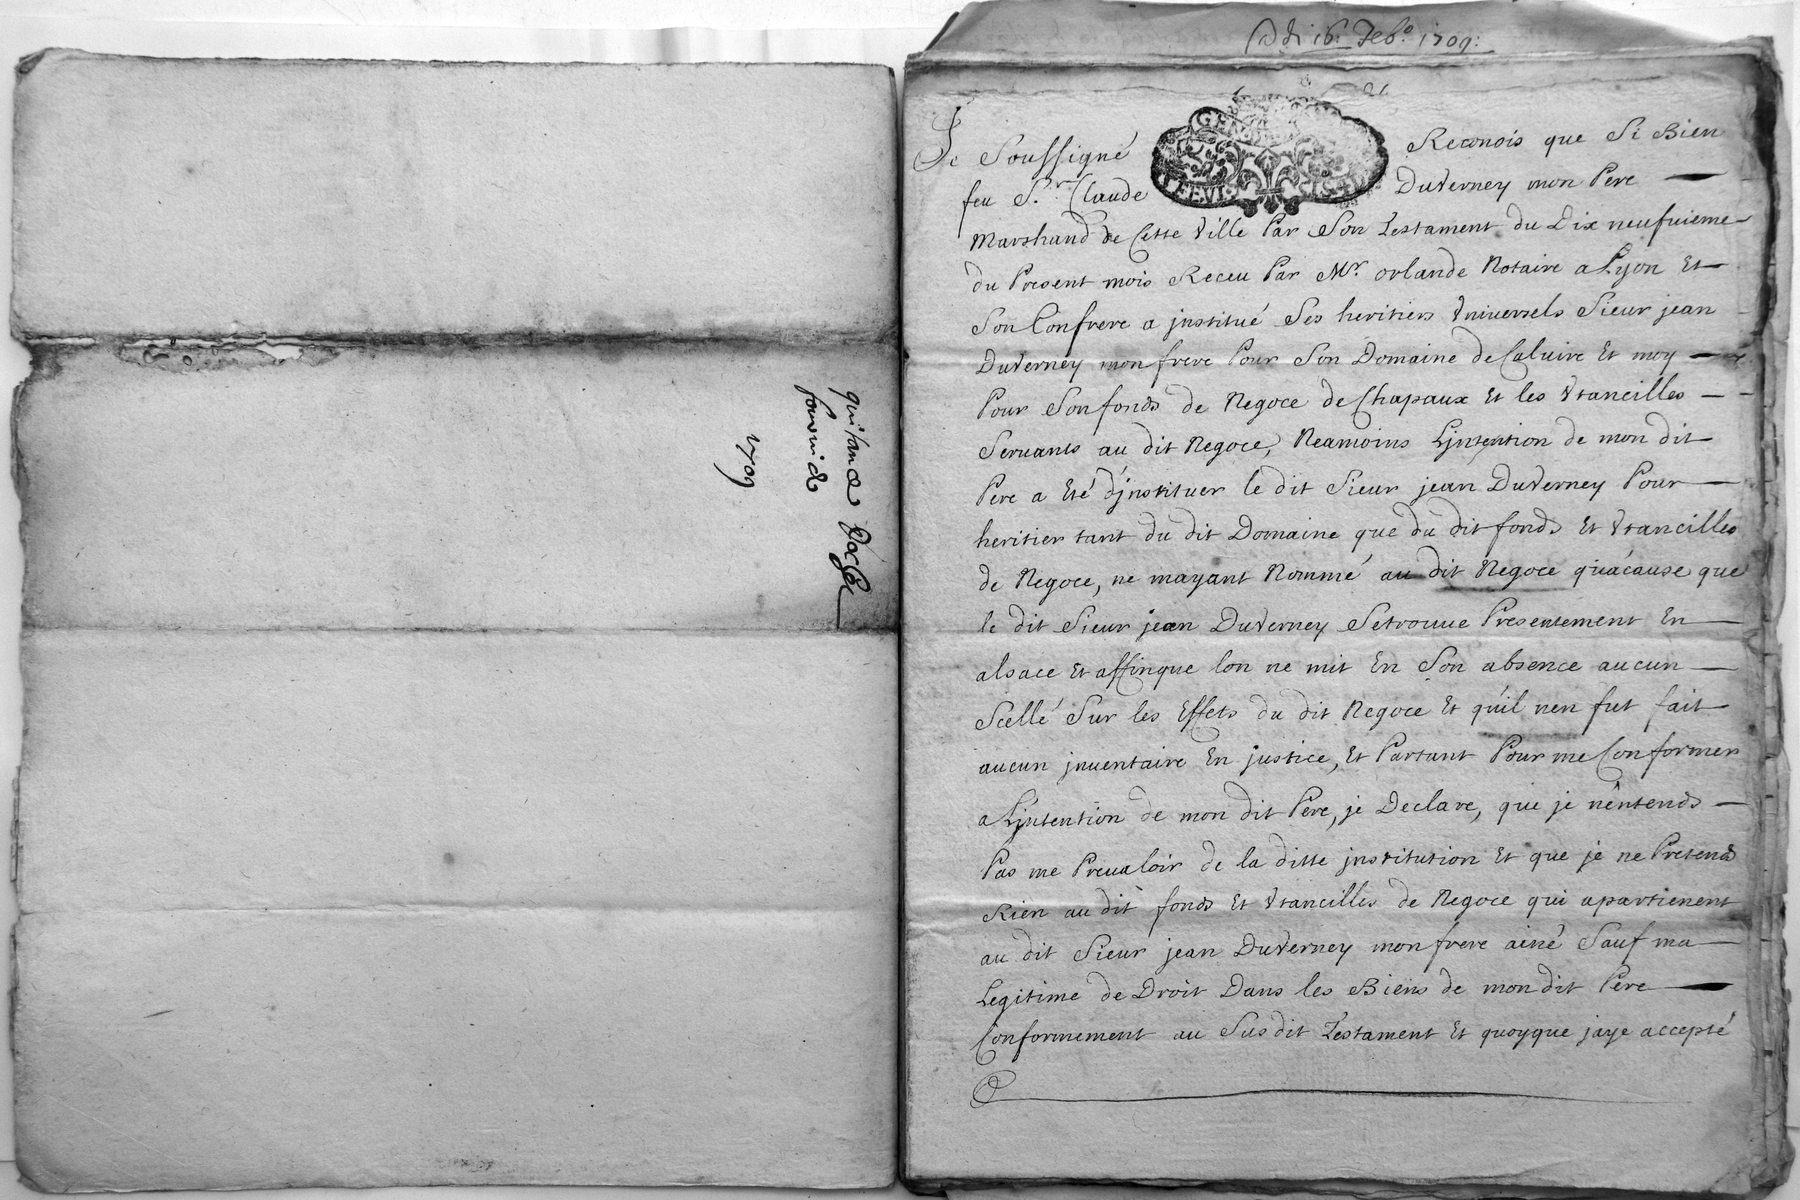 quitance
fourni de
1709
Adi 16: Feb.o 1709:
GEN
Je Soussigné Reconois que Si Bien
feu S.r Claude DuVerney mon Pere
Marshand de Cette Ville Par Son Testament du Dix neufuieme
du Present mois Receu Par Mr. orlande Notaire a Lyon Et
Son Confrere a jnstitué Ses heritiers Vniversels Sieur jean
DuVerney mon frere Pour Son Domaine de Caluire Et moy
Pour Son fonds de Negoce de Chapaux Et les Vtancilles
Seruants au dit Negoce, Neamoins Ljntention de mon dit
Pere a Eté d'jnstituer le dit Sieur jean DuVerney Pour
heritier tant du dit Domaine que du dit fonds Et Vtancilles
de Negoce, ne mayant Nommé au dit Negoce quácause que
le dit Sieur jean DuVerney Setrouue Presentement En
alsace Et affinque lon ne mit En Son absence aucun
Scellé Sur les Effets du dit Negoce Et qu'il nen fut fait
aucun jnuentaire En justice, Et Partant Pour me Conformer
a Ljntention de mon dit Pere, je Declare, que je n'entends
Pas me Preualoir de la ditte jnstitution Et que je ne Pretends
Rien au dit fonds Et Vtancilles de Negoce qui apartienent
au dit Sieur jean DuVerney mon frere ainé Sauf ma
Legitime de Droit Dans les Biens de mon dit Pere
Conformement au Susdit Testament Et quoyque jaye accepté